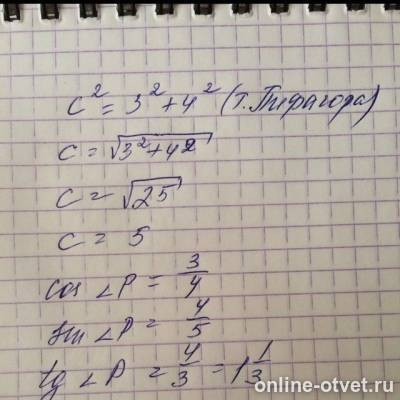 c² = 3² + 4² (т. Пифагора)
c = √3² + 4²
c = √25
c = 5
cos ∠P = 3/4
sin ∠P = 4/5
tg ∠P = 4/3 = 1 1/3
online-otvet.ru